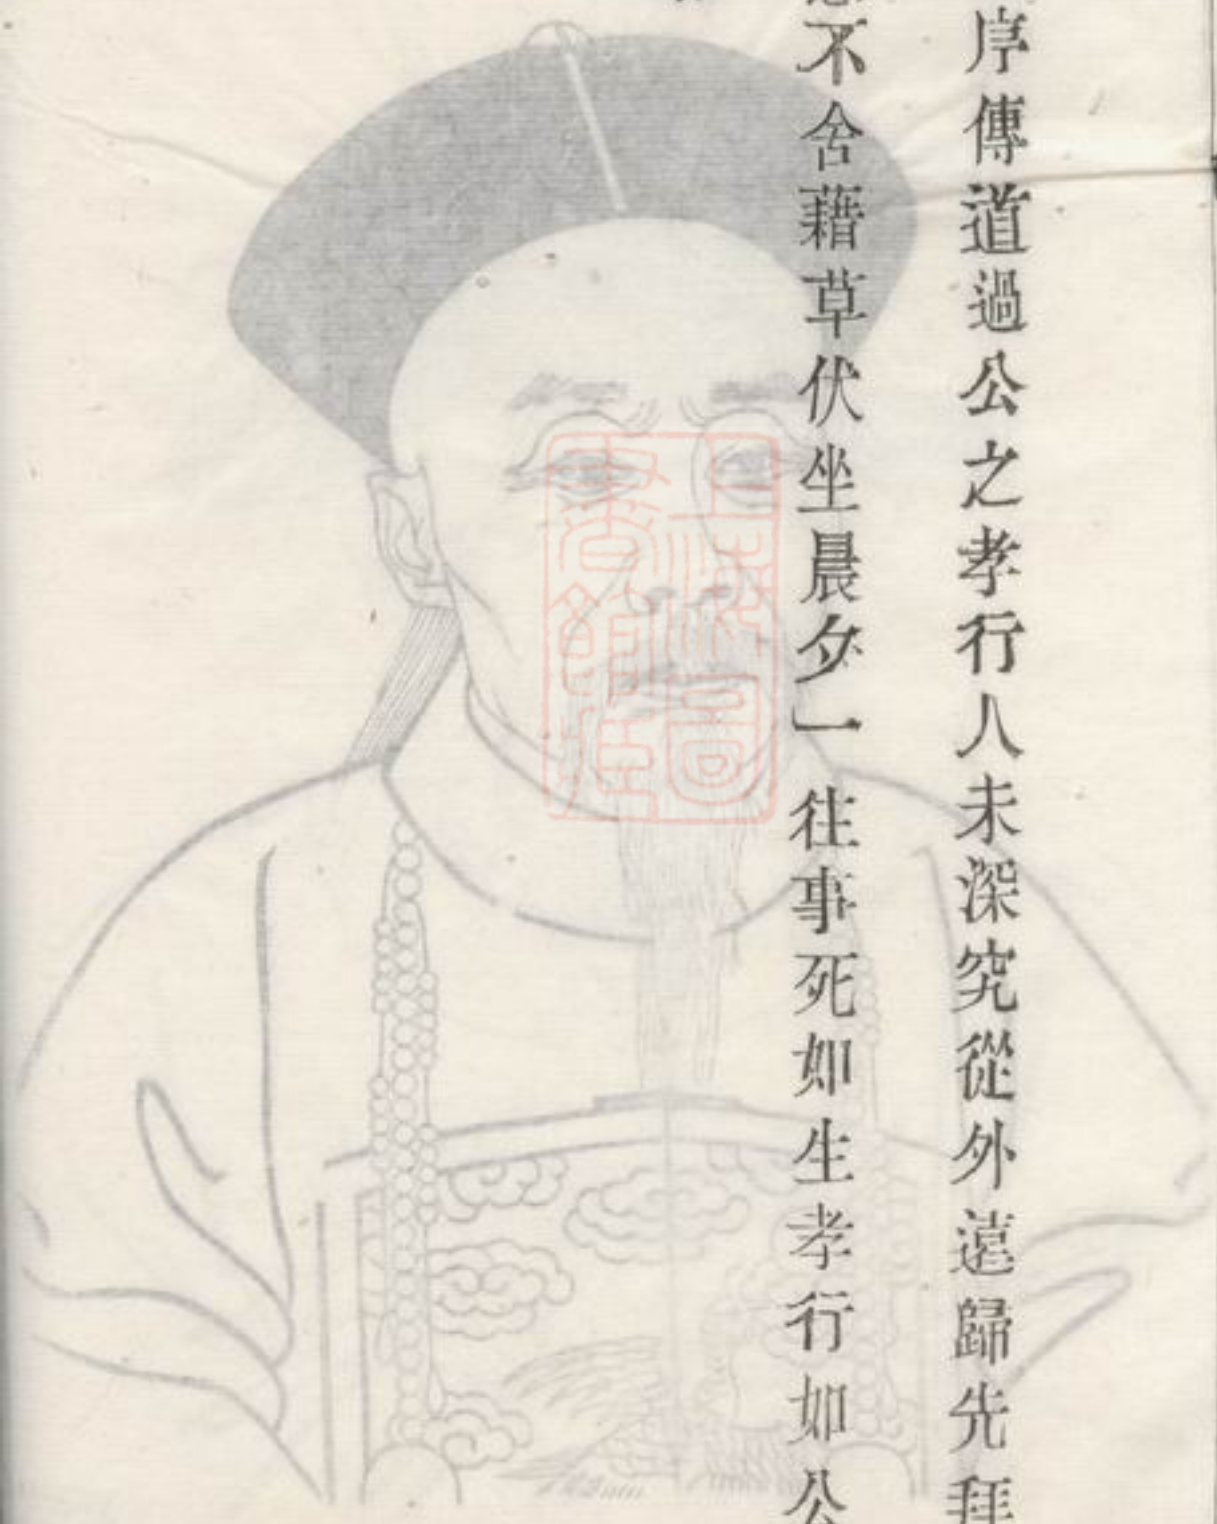 序傳道過公之孝行人未深究從外遠歸先拜
不舍藉草伏坐晨夕一往事死如生孝行如公
上海圖書館藏